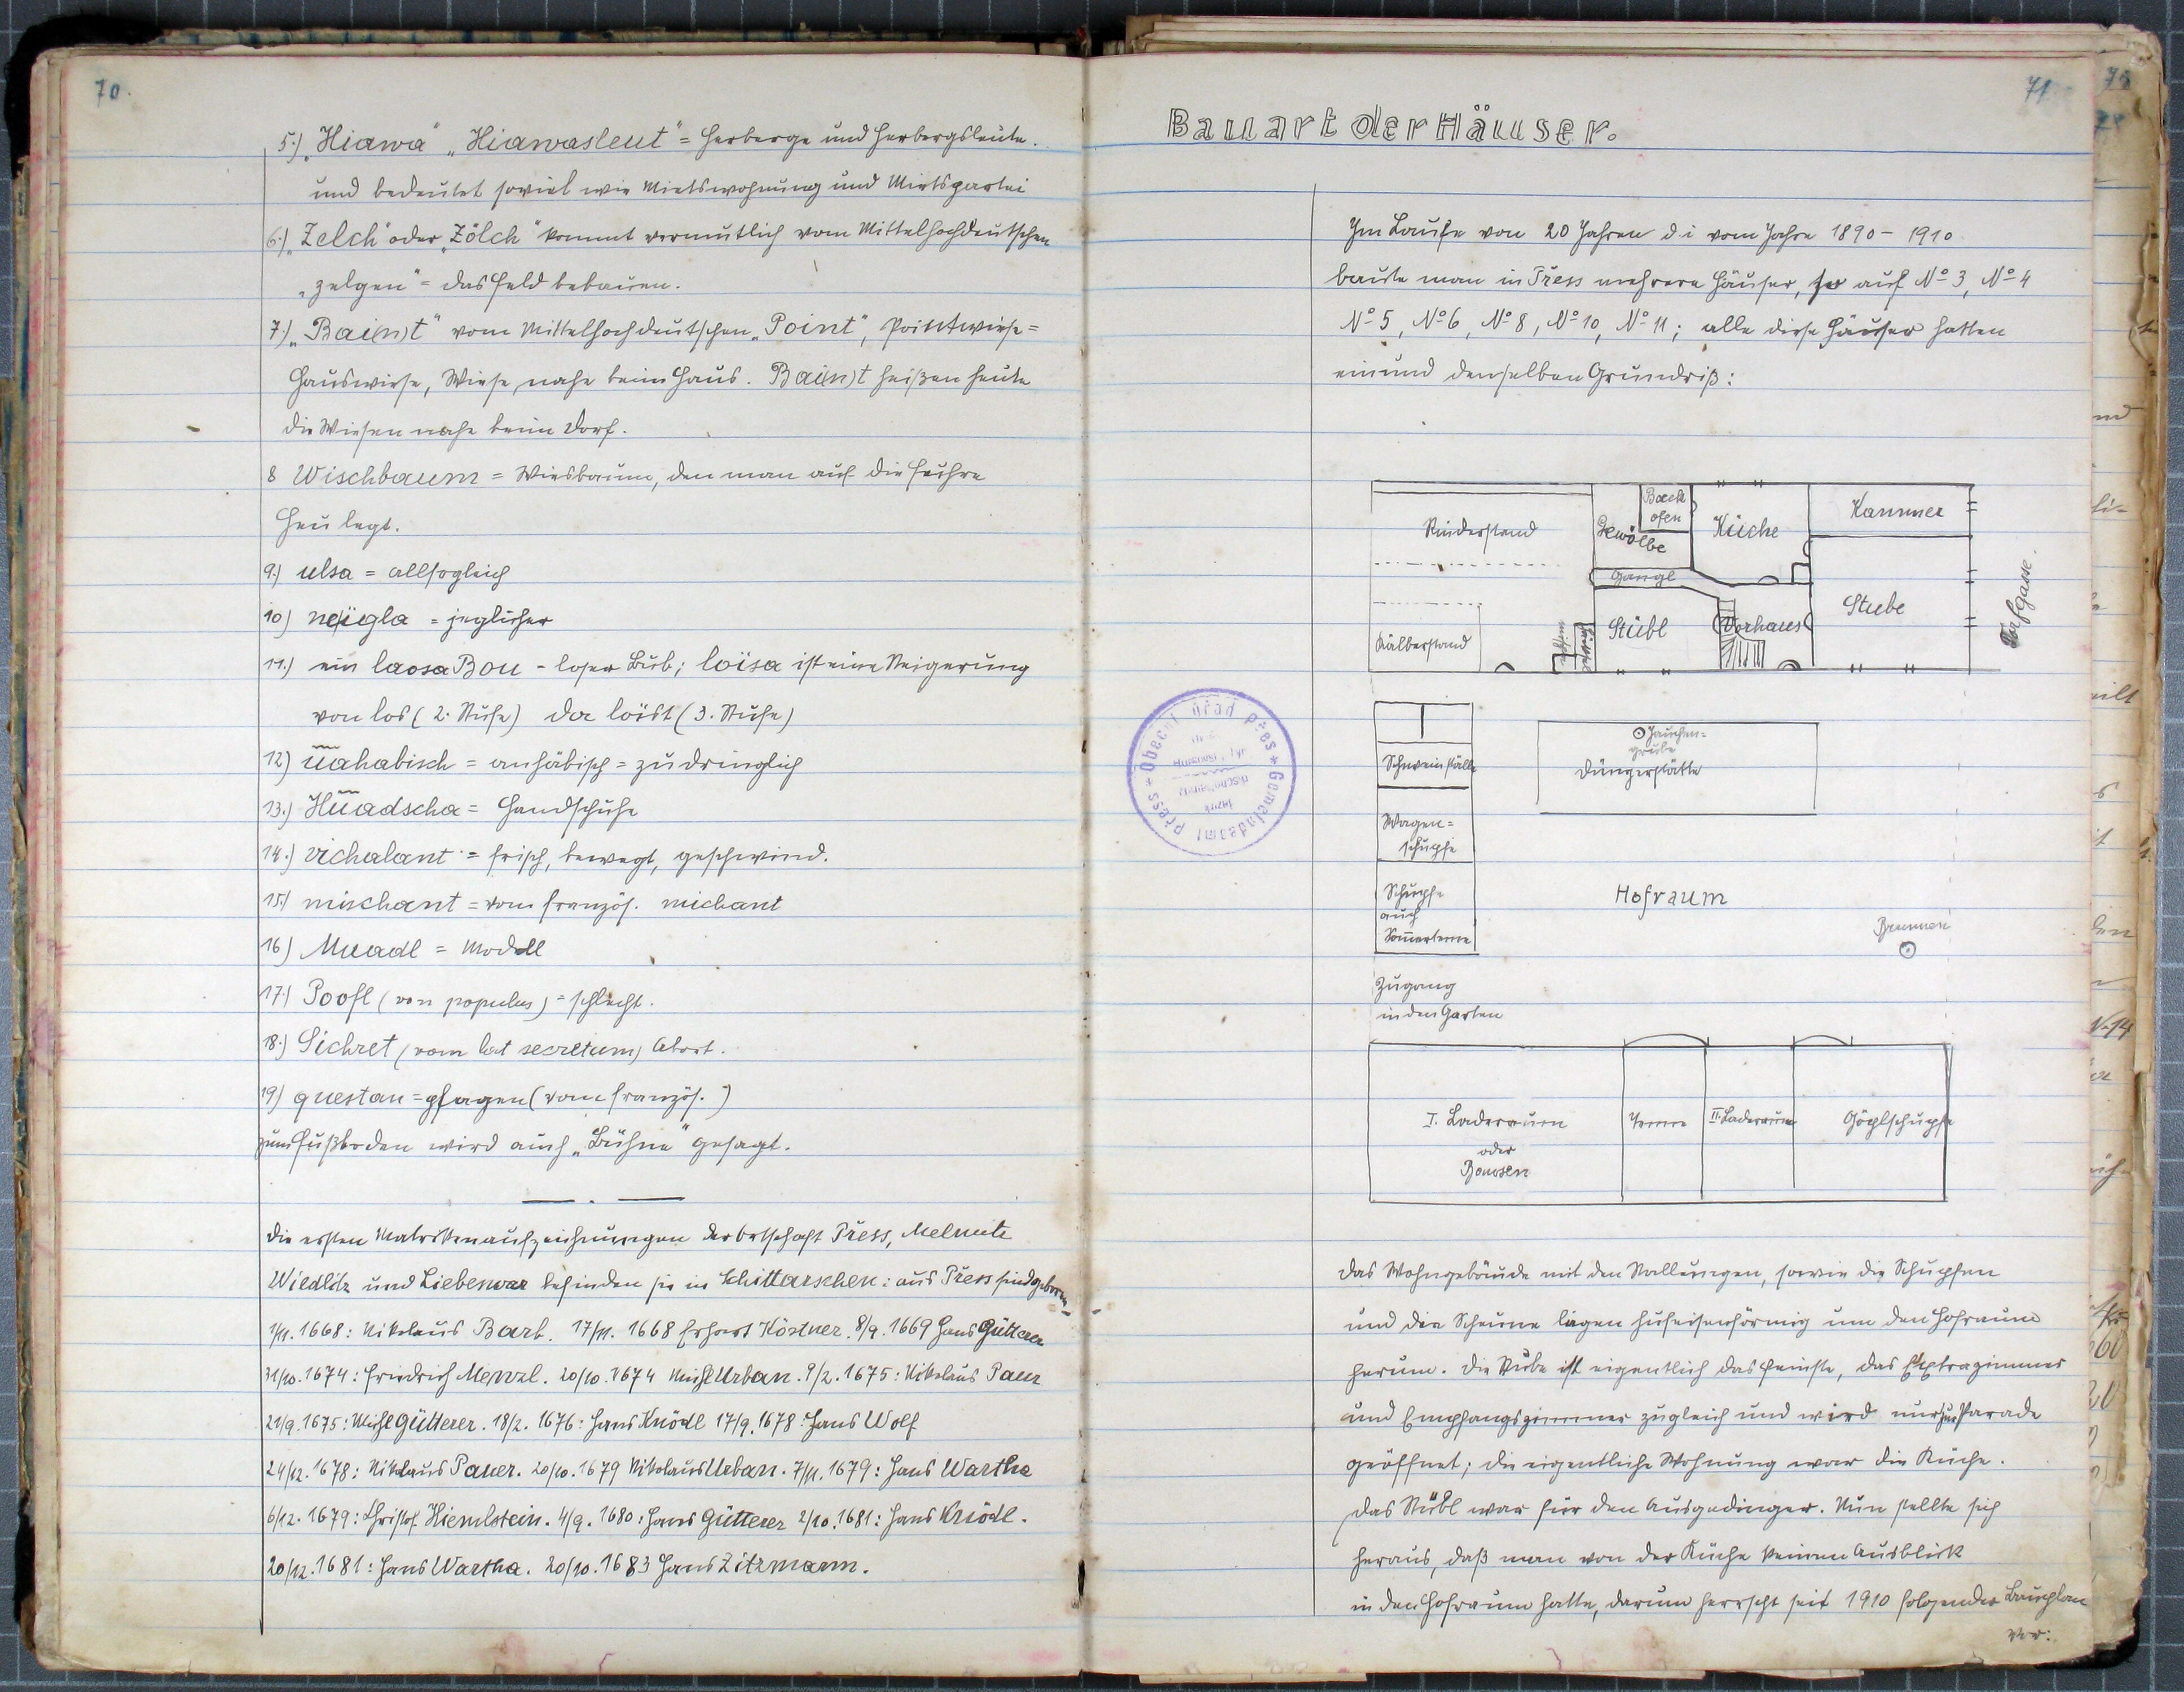 70.
5.) „Hiawa" „Hiawasleut" = Herberge und Herbergsleute.
und bedeutet soviel wie Mietswohnung und Mietspartei
6.) „Zelch" oder „Zölch" kommt vermutlich vom Mittelhochdeutschen
„zelgen" = das Feld bebauen.
7.) „Bai(n)t" vom Mittelhochdeutschen „Point", Pointwiese =
Hauswiese, Wiese nahe beim Haus. Bai(n)t heißen heute
die Wiesen nahe beim Dorf.
8 Wischbaum = Wiesbaum, den man auf die Fuhre
Heu legt.
9.) ulsa = allsogleich
10) neïgla = jeglicher
11.) ein laosa Bou - loser Bub; loïsa ist eine Steigerung
von los (2. Stufe) da loïst (3. Stufe)
12) üahabisch = anhäbisch = zudringlich
13.) Hüadscha = Handschuhe
14.) vichalant = frisch, bewegt, geschwind.
15.) mischant = vom französ. michant
16) Muadl = Modell
17.) Poofl (von populus) = schlecht.
18.) Sichret (vom lat secretum) Abort.
19) questan = fragen (vom französ.)
zum Fußboden wird auch „Bühne" gesagt.
Die ersten Matrikenaufzeichnungen der Ortschaft Press, Melmitz
Wiedlitz und Lieben war befinden sie in Schittarschen: aus Press sind geboren
1/11. 1668: Nikolaus Barb. 17/11. 1668 Erhart Köstner. 8/9. 1669 Hans Gütterer
31/10. 1674: Friedrich Menzl. 20/10. 1674 Michl Urban. 9/2. 1675: Nikolaus Pauer
21/9. 1675: Michl Gütterer. 18/2. 1676: Hans Knödl 17/9. 1678: Hans Wolf
24/12. 1678: Nikolaus Pauer. 20/10. 1679 Nikolaus Urban. 7/11. 1679: Hans Wartha
6/12. 1679: Christof Hiemlstein. 4/9. 1680: Hans Gütterer 2/10. 1681: Hans Knödl.
20/12. 1681: Hans Wartha. 20/10. 1683 Hans Zitzmann.
71
Bauart der Häuser.
Im Laufe von 20 Jahren d.i vom Jahre 1890 - 1910
baute man in Press mehrere Häuser, so auf No 3, No 4
No 5, No 6, No 8, No 10, No 11; alle diese Häuser hatten
ein und denselben Grundriß:
Rinderstand
Gewölbe
Back
ofen
Küche
Kammer
Gangl
Kälberstand
Stübl
Vorhaus
Stube
Dorfgasse.
Obecní úřad Press * Gemeindeamt Press *
Schweinställe
Jauchen-
grube
Düngerstätte
Wagen=
schupfe
Schupfe
auch
Sommertenne
Hofraum
Brunnen
Zugang
in den Garten
I. Laderaum
oder
Bonosen
Tenne
II. Laderaum
Göplschupfe
Das Wohngebäude mit den Stallungen, sowie die Schupfen
und die Scheune liegen hufeisenförmig um den Hofraum
herum. Die Stube ist eigentlich das feinste, das Extrazimmer
und Empfangszimmer zugleich und wird nur zur Parade
geöffnet; die eigentliche Wohnung war die Küche.
Das Stübl war für den Ausgedinger. Nun stellte sich
heraus, daß man von der Küche keinen Ausblick
in den Hofraum hatte, darum herrscht seit 1910 folgender Bauplan
vor: